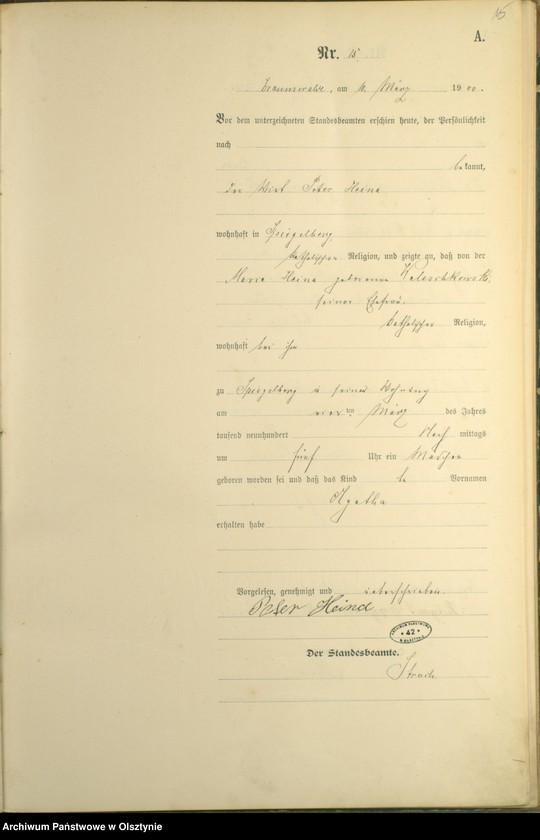 15
A.
Nr. 15.
Braunswalde, am 6. März 1900.
Vor dem unterzeichneten Standesbeamten erschien heute, der Persönlichkeit
nach
bekannt,
der Wirt Peter Heind
wohnhaft in Spiegelberg
katholischer Religion, und zeigte an, daß von der
Maria Heind geborenen
seiner Ehefrau
katholischer Religion,
wohnhaft bei ihm
zu Spiegelberg in seiner Wohnung
am vierten März des Jahres
tausend neunhundert Nachmittags
um fünf Uhr ein Mädchen
geboren worden sei und daß das Kind den Vornamen
Agatha
erhalten habe
Vorgelesen, genehmigt und unterschrieben.
Peter Heind
42
Der Standesbeamte.
Archiwum Państwowe w Olsztynie